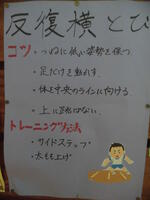 反復横とび
コツ・つねに低い姿勢を保つ
・足だけを動かす
・体を中央のラインに向ける
・上に跳ばない
トレーニング方法
・サイドステップ
・太もも上げ